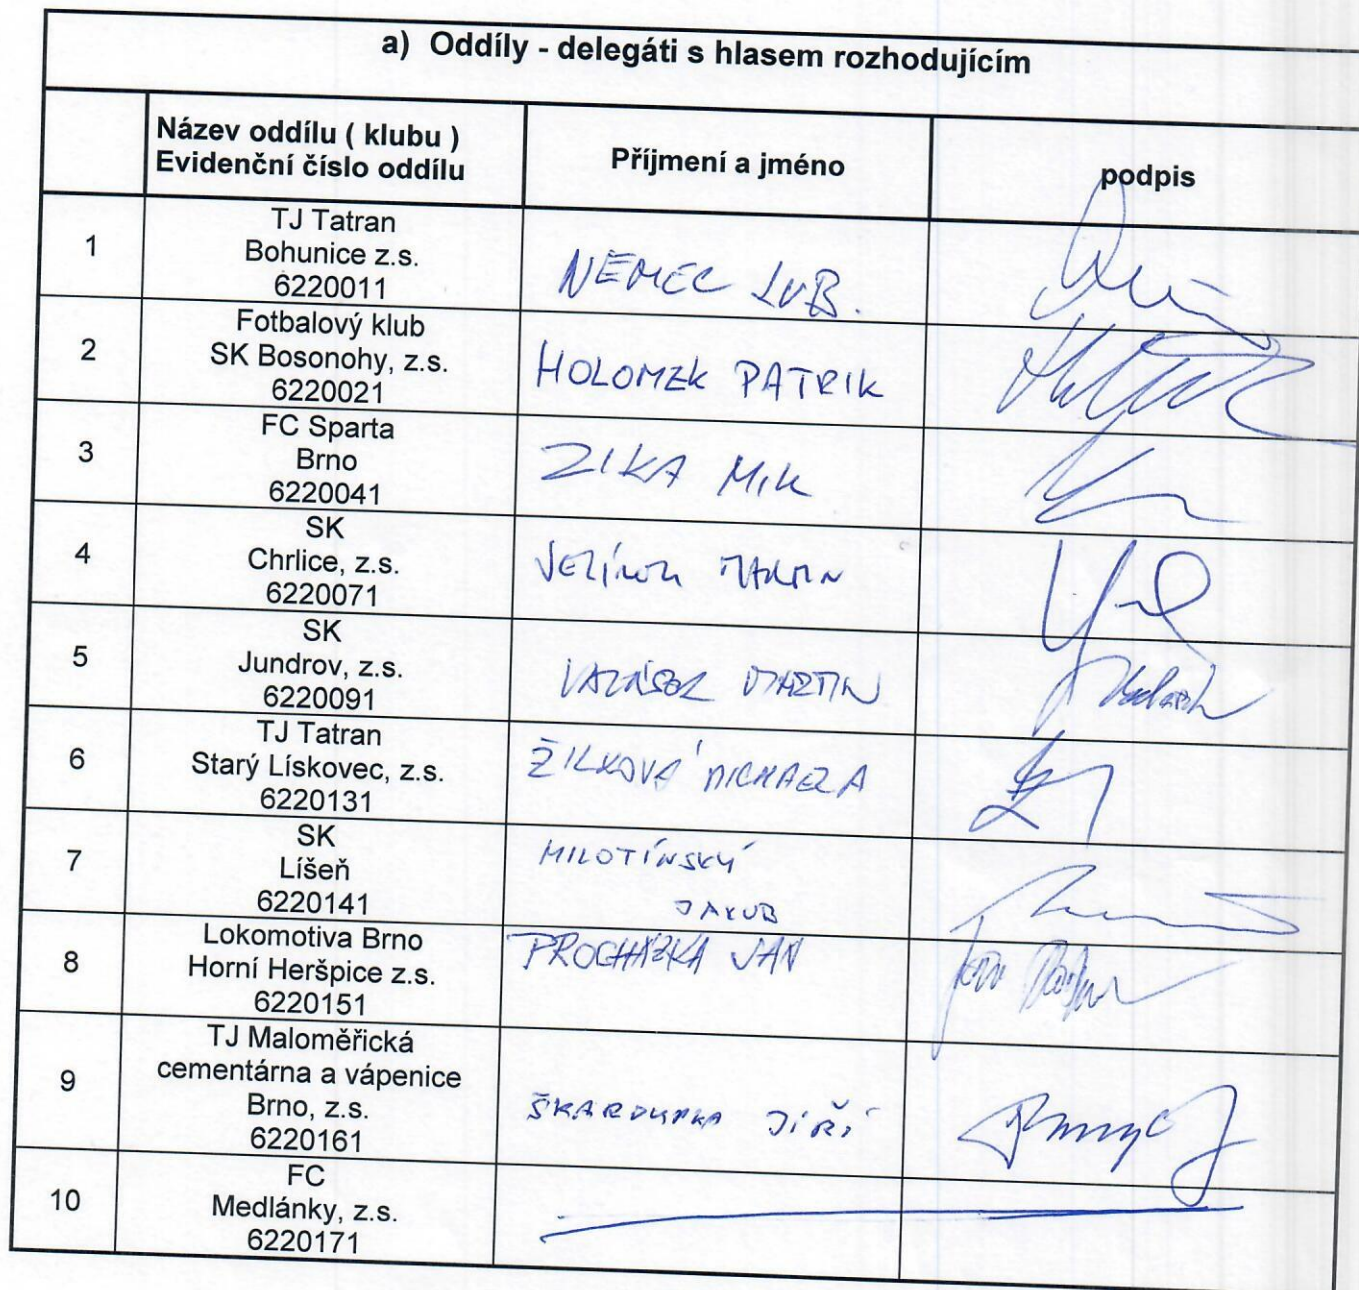 a) Oddíly - delegáti s hlasem rozhodujícím
Název oddílu ( klubu )
Evidenční číslo oddílu
Příjmení a jméno
podpis
1
TJ Tatran
Bohunice z.s.
6220011
NĚMEC LUB.
2
Fotbalový klub
SK Bosonohy, z.s.
6220021
HOLOMEK PATRIK
3
FC Sparta
Brno
6220041
ZIKA MIK
4
SK
Chrlice, z.s.
6220071
MARTIN
5
SK
Jundrov, z.s.
6220091
VALÁŠEK MARTIN
6
TJ Tatran
Starý Lískovec, z.s.
6220131
ŽILKOVÁ MICHAELA
7
SK
Líšeň
6220141
MILOTÍNSKÝ
JAKUB
8
Lokomotiva Brno
Horní Heršpice z.s.
6220151
PROCHÁZKA JAN
9
TJ Maloměřická
cementárna a vápenice
Brno, z.s.
6220161
ŠKAROUPKA JIŘÍ
10
FC
Medlánky, z.s.
6220171